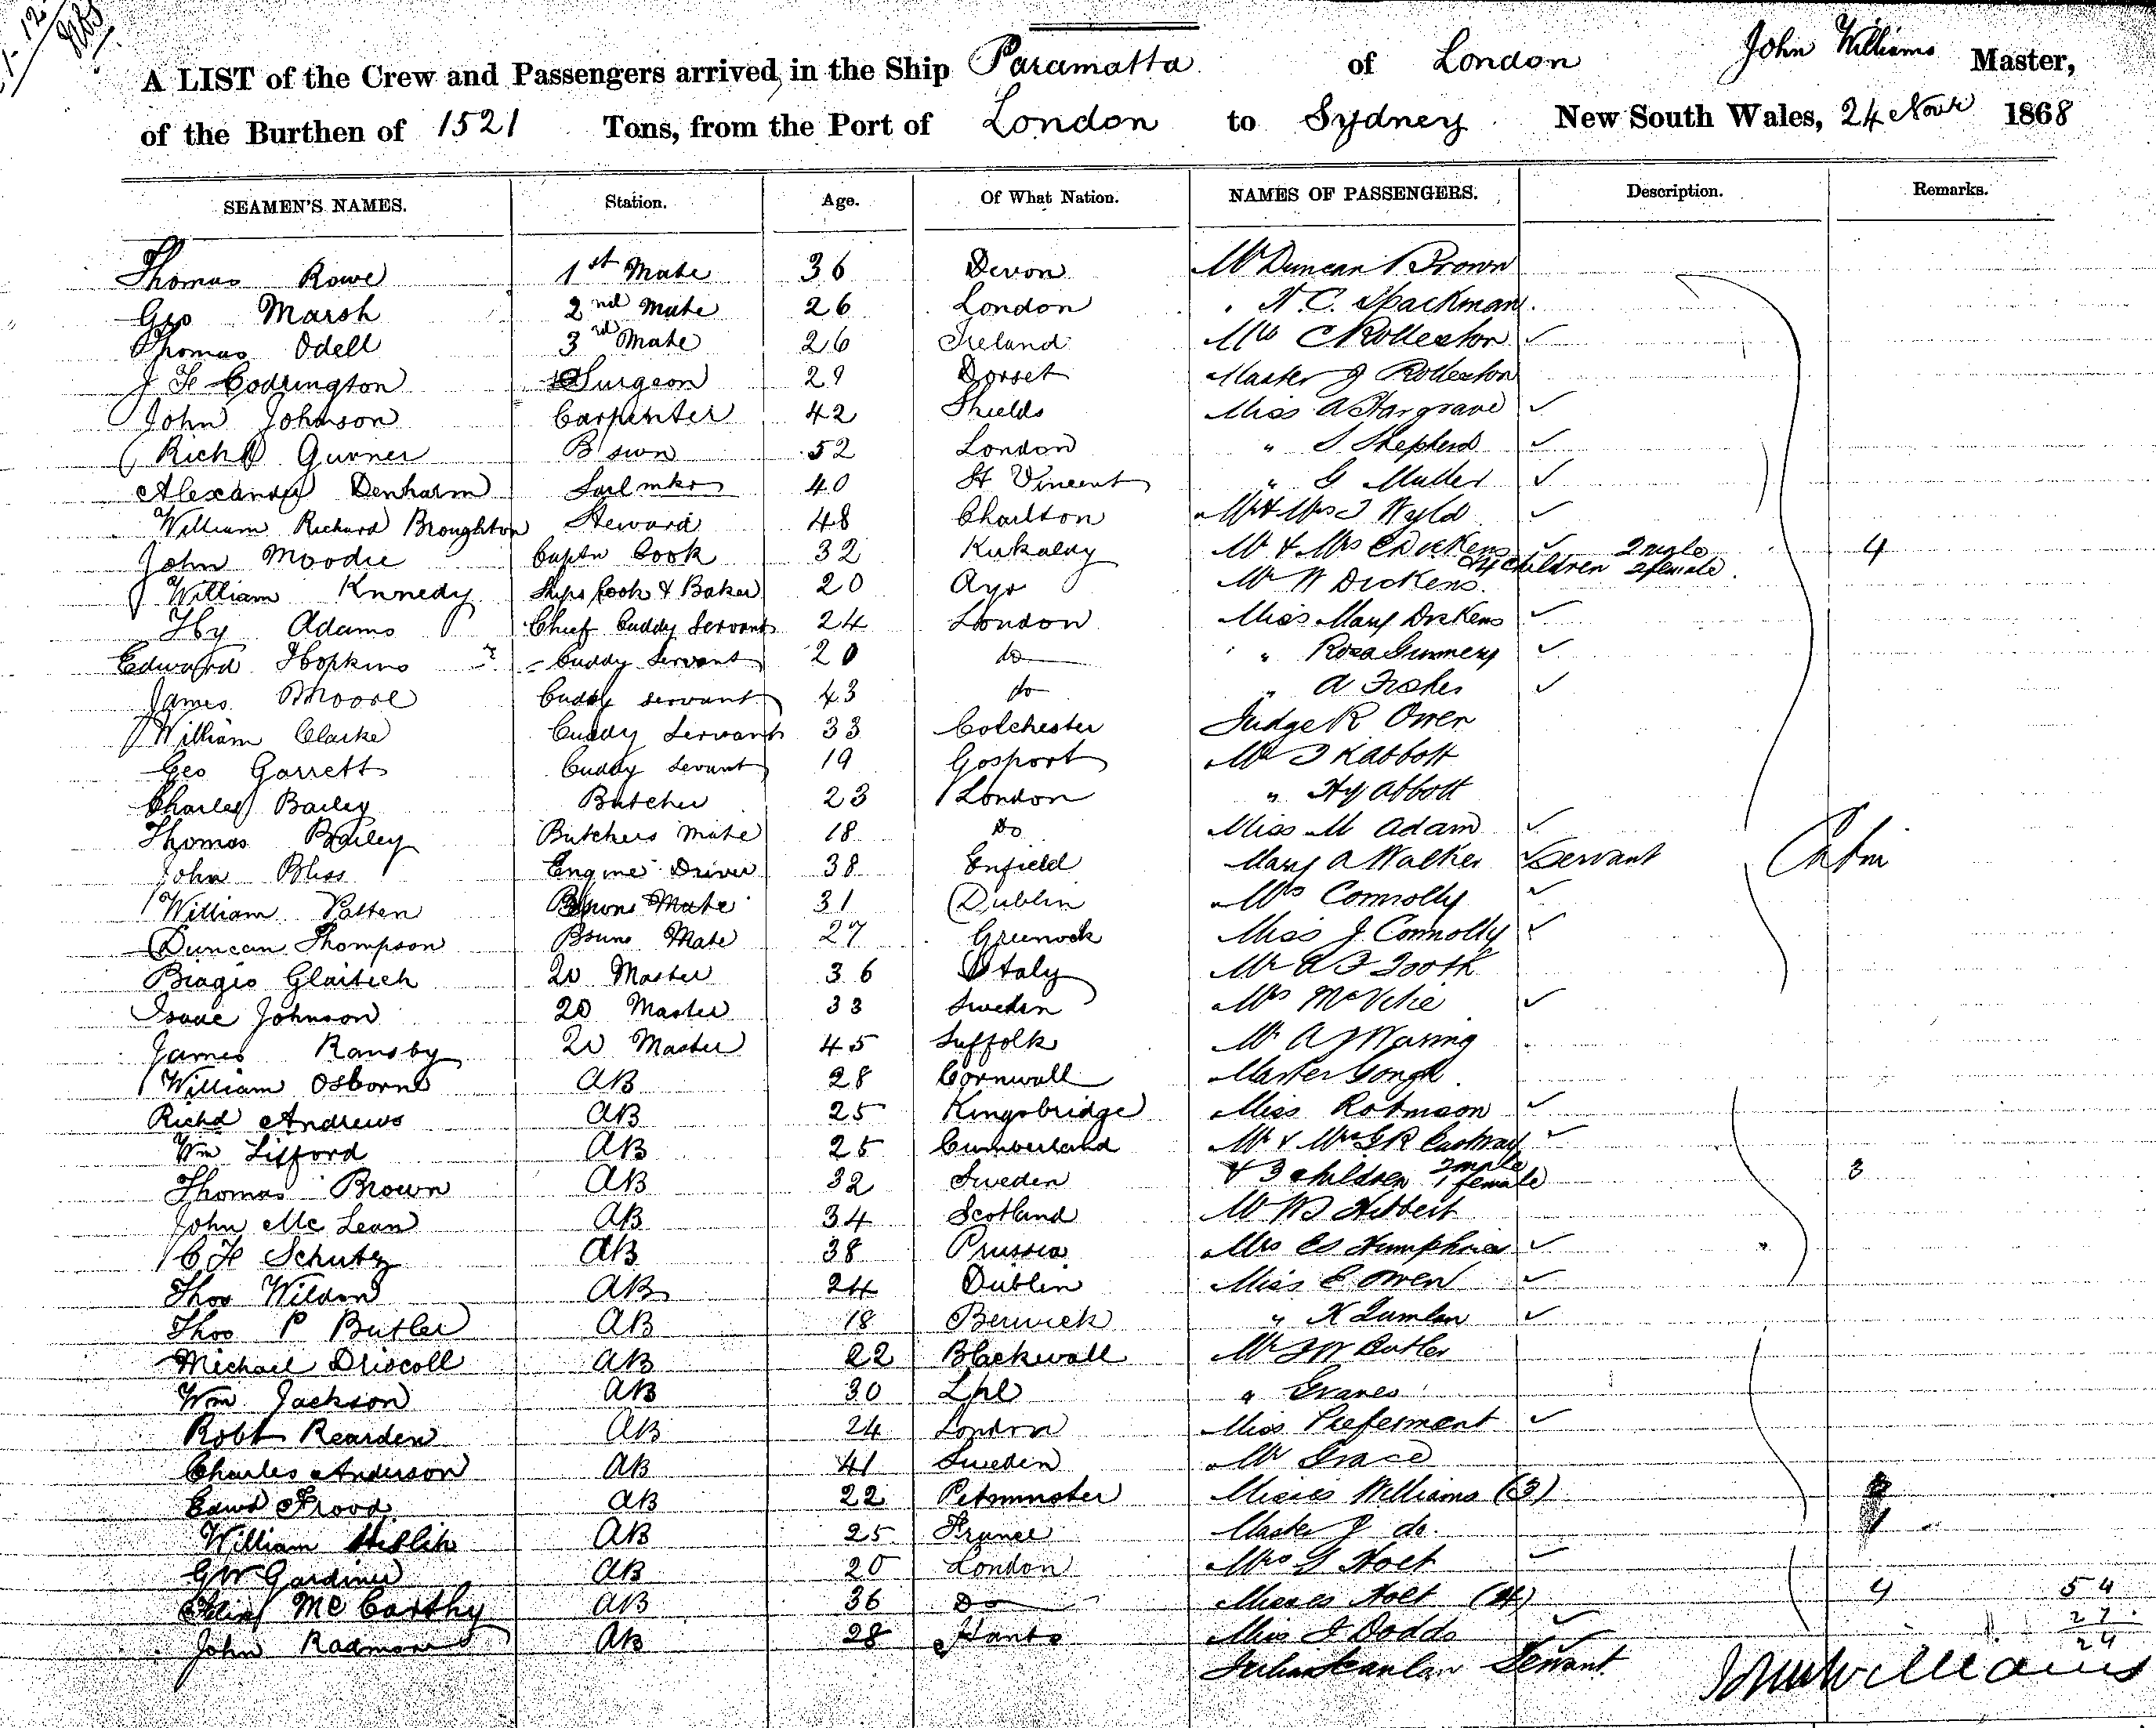 A LIST of the Crew and Passengers arrived in the Ship Paramatta of London John Williams Master,
of the Burthen of 1521 Tons, from the Port of London to Sydney New South Wales, 24 Novr 1868
SEAMEN'S NAMES. Station. Age. Of What Nation. NAMES OF PASSENGERS. Description. Remarks.
Thomas Rowe 1st Mate 36 Devon Mr Duncan Brown
Geo Marsh 2nd Mate 26 London " N. C. Spackman
Thomas Odell 3rd Mate 26 Ireland Mrs C Rolleston ✓
J F Codrington Surgeon 29 Dorset Master J Rolleston
John Johnson Carpenter 42 Shields Miss A Hargrave ✓
Richd Gunner B swn 52 London " S Shepherd ✓
Alexander Denharm Sailmkr 40 St Vincent " G Muller ✓
William Richard Broughton Steward 48 Charlton Mr & Mrs J Wyld ✓
John Moodie Captn Cook 32 Kirkaldy Mr & Mrs C Dickens ✓ 2 male 4
& 4 children 2 female
William Knnedy Ships Cook & Baker 20 Ayr Mr W Dickens
Hy Adams Chief Cuddy Servant 24 London Miss Mary Dickens ✓
Edward Hopkins Cuddy Servant 20 do " Rosa Gunnery ✓
James Moore Cuddy servant 43 do " A ✓
William Clarke Cuddy Servant 33 Colchester Judge R Owen
Geo Garrett Cuddy Sevant 19 Gosport Mr J K Abbott
Charles Bailey Butcher 23 London " Hy Abbott
Thomas Bailey Butchers Mate 18 Do Miss M Adam ✓
John Bliss Engine Driver 38 Enfield Mary A Walker ✓ Servant Cabin
William Patten Bswns Mate 31 Dublin Mrs Connolly ✓
Duncan Thompson Bsuns Mate 27 Greenock Miss J Connolly ✓
Biagio Glaitich 2r Master 36 Italy Mr A F Tooth
Isaac Johnson 2r Master 33 Sweden Mrs McVitie ✓
James Ransby 2r Master 45 Suffolk Mr A J Waring
William Osborne AB 28 Cornwall Master Gongh
Richd Andrews AB 25 Kingsbridge Miss Robinson ✓
Wm Lifford AB 25 Cumberland Mr & Mrs G R Eastway ✓
Thomas Brown AB 32 Sweden & 3 children 2 male 1 female 3
John Mc Lean AB 34 Scotland Mr W J Hibbert
C F Schutz AB 38 Prussia Mrs Humphries ✓
Thos Wildon AB 24 Dublin Miss E Owen ✓
Thos P Butler AB 18 Berwick " K Quinlan ✓
Michael Driscoll AB 22 Blackwall Mr J W Butler
Wm Jackson AB 30 Lpl " Graves
Robt Rearden AB 24 London Miss Preferment ✓
Charles Anderson AB 41 Sweden Mr Grace
Edwd Frood AB 22 Pitminster Misses Williams (3)
William AB 25 France Master J do.
G W Gardiner AB 20 London Mrs J Holt ✓
Felix Mc Carthy AB 36 Do Misses Holt (4) 4 54
John Radmore AB 28 Hants Miss J Dodds ✓ 27
24
Julia Scanlan Servant John Williams